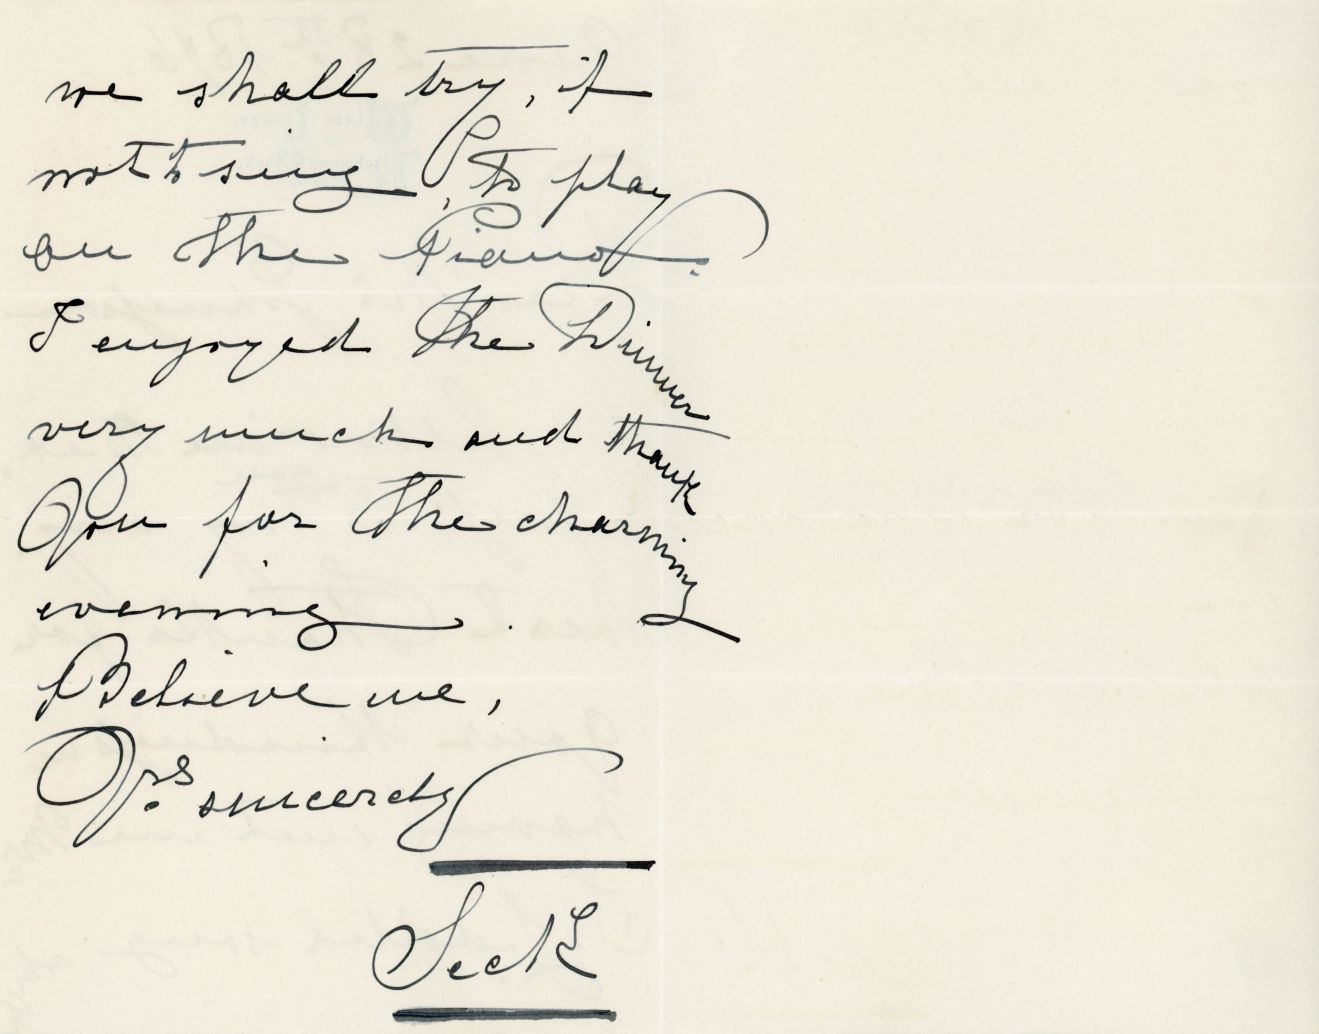 we shall try, if
not to sing, to play
on the Piano.
I enjoyed the Dinner
very much and thank
You for the charming
evening.
Believe me,
Yrs sincerely